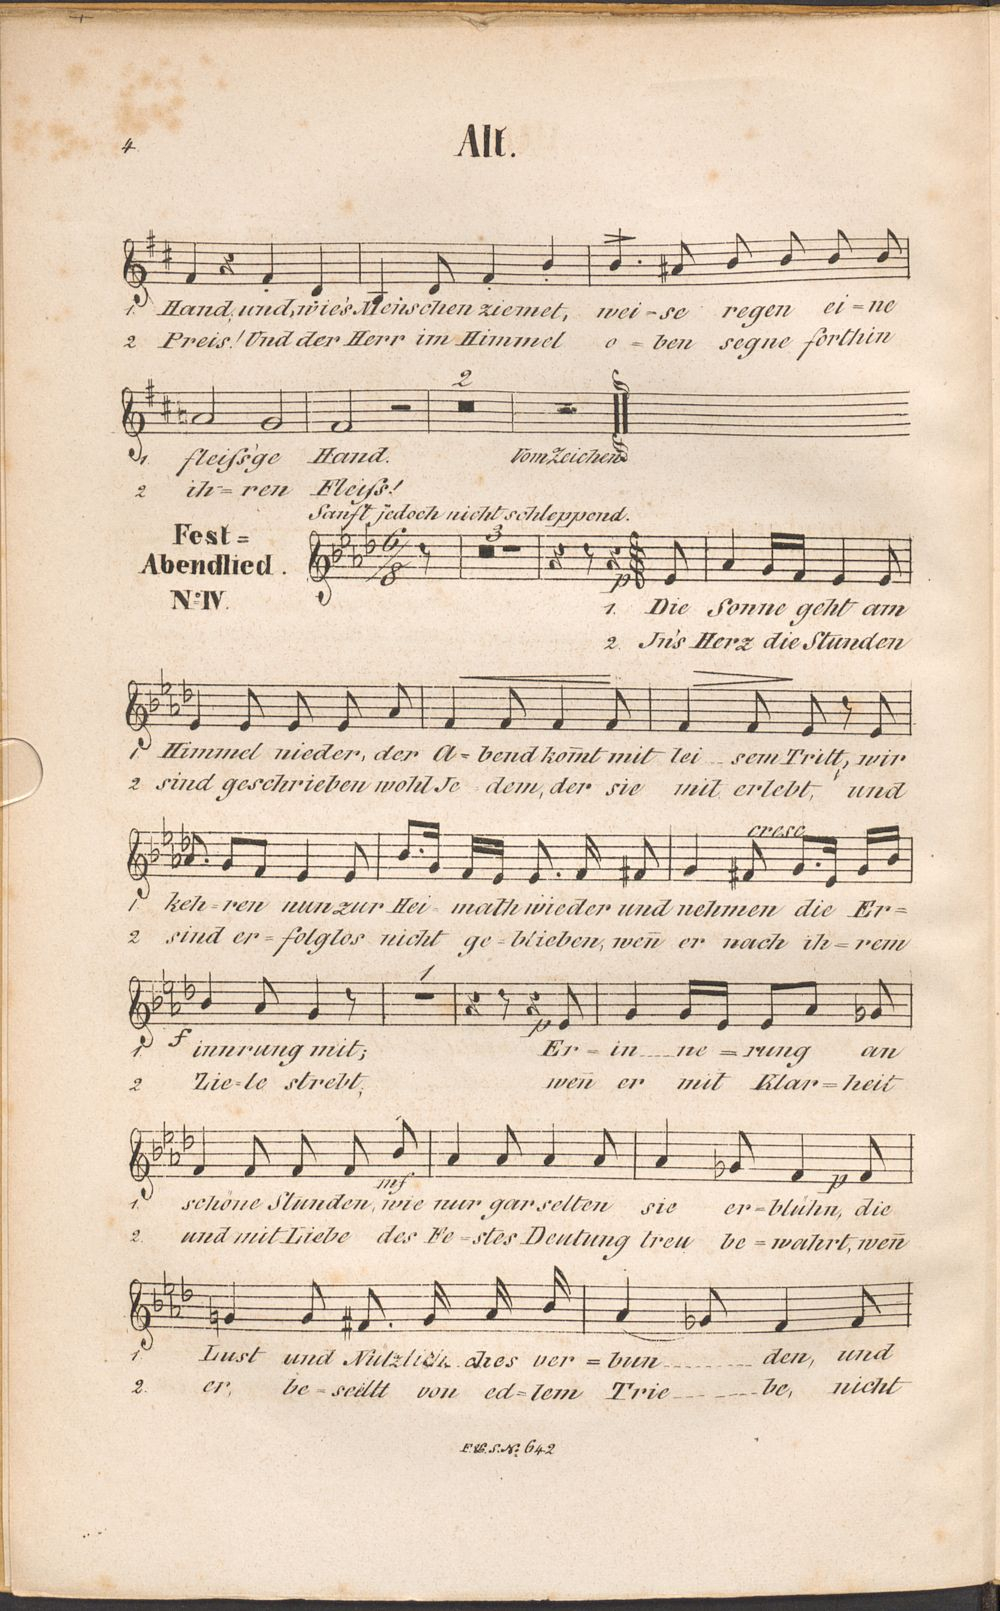 4
Alt.
1. Hand, und, wie's Menschen ziemet, wei-se regen ei=ne
2 Preis! Und der Herr im Himmel o=ben segne forthin
2
1. fleiſs'ge Hand. Vom Zeichen
2 ih=ren Fleiſs!
Sanft jedoch nicht schleppend.
Fest=
Abendlied.
No. IV.
6/8 3 p
1. Die Sonne geht am
2. In's Herz die Stunden
1. Himmel nieder, der A=bend kom̄t mit lei - sem Tritt, wir
2 sind geschrieben wohl Je - dem, der sie mit erlebt, und
cresc
1. keh-ren nun zur Hei-math wieder und nehmen die Er=
2 sind er=folglos nicht ge-blieben, wen̄ er nach ih=rem
1
p
f
1 innrung mit; Er-in---ne=rung an
2 Zie=le strebt, wen̄ er mit Klar=heit
mf p
1. schöne Stunden, wie nur gar selten sie er=blühn, die
2. und mit Liebe des Fe-stes Deutung treu be=wahrt, wen̄
1. Lust und Nützlich ches ver=bun--------den, und
2. er, be-seellt von ed=lem Trie--------be, nicht
642